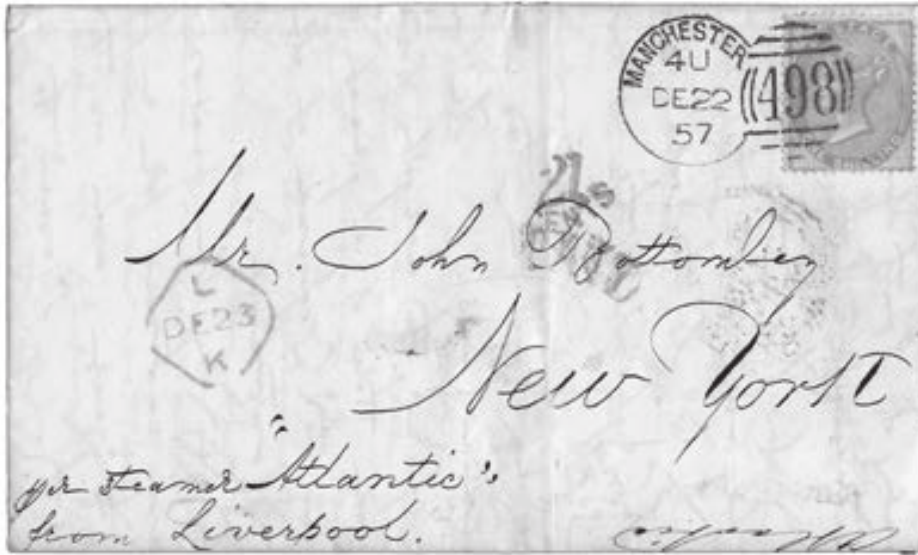 MANCHESTER
4U
DE22
57
498
Mr. John Bottomley
L
DE23
K
New York
per steamer "Atlantic",
from Liverpool.